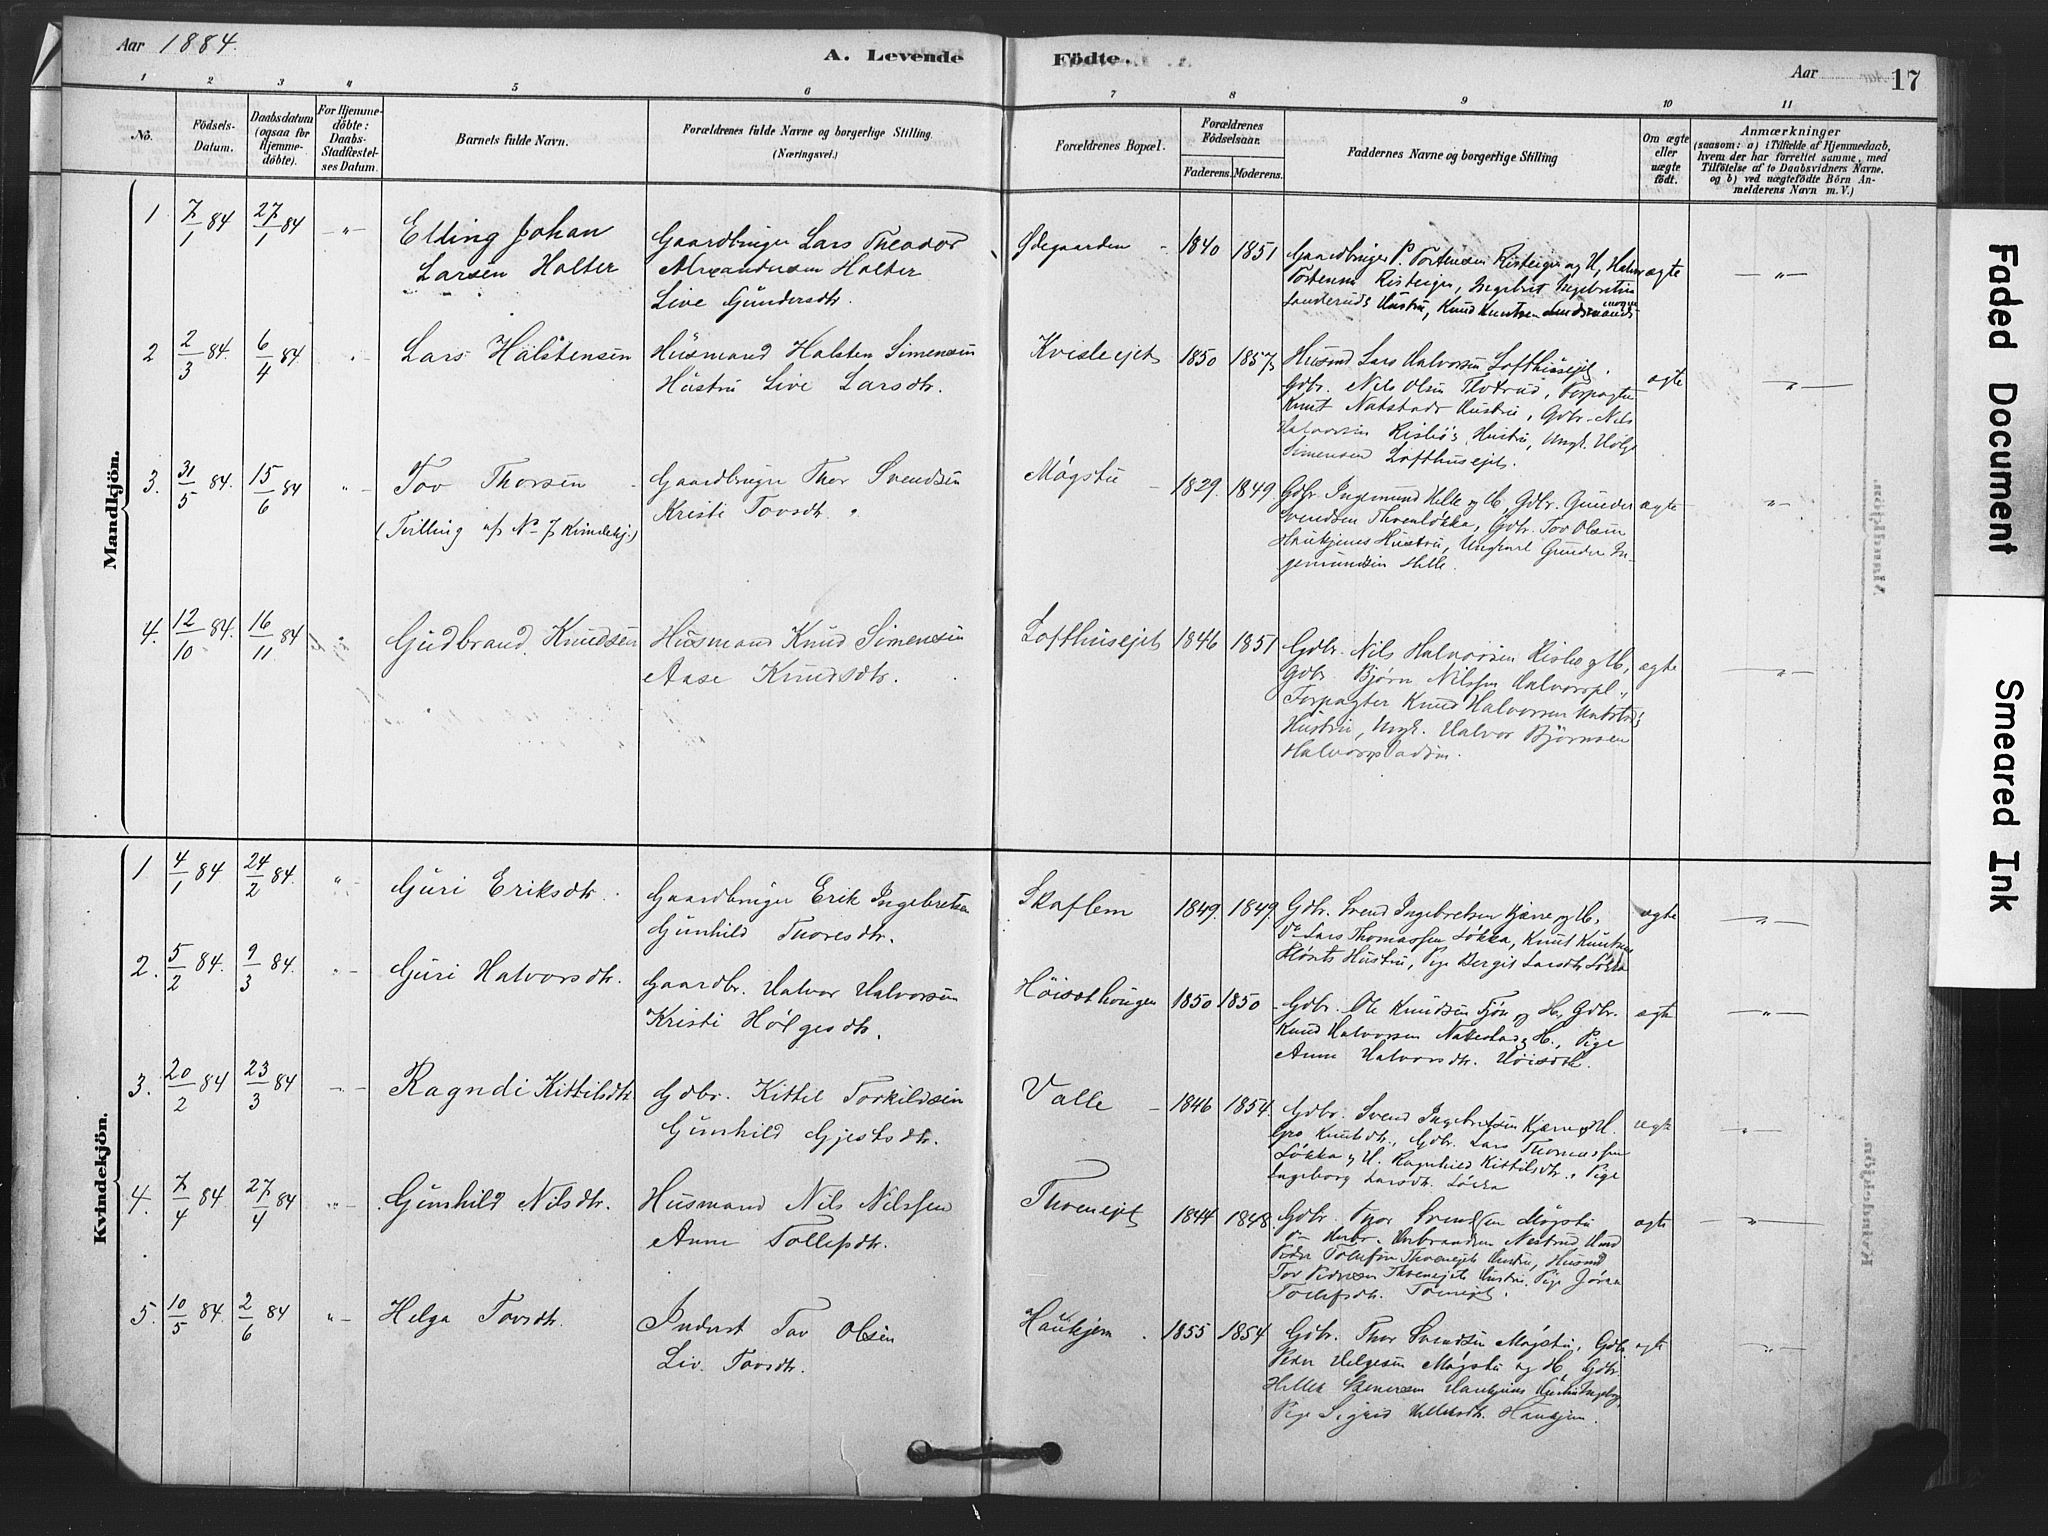 Aar 1884.
A. Levende
Födte.
Aar
17
1 2 3 4 5 6 7 8 9 10 11
No.
Födsels-
Datum.
Daabsdatum
(ogsaa for
Hjemme-
döbte).
For Hjemme-
döbte:
Daabs-
Stadfæstel-
ses Datum.
Barnets fulde Navn.
Forældrenes fulde Navne og borgerlige Stilling.
(Næringsvei.)
Forældrenes Bopæl.
Forældrenes
Födselsaar.
Faderens. Moderens.
Faddernes Navne og borgerlige Stilling
Om ægte
eller
uægte
födt.
Anmærkninger
(saasom: a) i Tilfælde af Hjemmedaab,
hvem der har forrettet samme, med
Tilföielse af to Daabsvidners Navne.
og b) ved uægtefödte Börn An-
melderens Navn m. V.)
Mandkjön.
1 7/1 84 27/1 84 -"-
Elling Johan
Larsen Holter
Gaardbruger Lars Theodor
Alexandersen Holter
Live Gundersdtr.
Ødegaarden - 1840 1851
Gaardbruger P. Torstensen Risteigen og H,
Risteigen, Ingebret Ingebretsen
Hustru, Knud Knutsen
ægte -"-
2 2/3 84. 6/4 84
Lars Halstensen
Husmand Halsten Simensen
Hustru Live Larsdtr.
Kvisleejet 1850 1857
Husmd Lars Halvorsen Lofthusejet.
Gdbr. Nils Olsen Flotrud, Forpagter
Knut Natstads Hustru, Gdbr. Nils
Halvorsen Risbøs Hustru, Ungk. Helge
Simensen Lofthusejet.
ægte -"-
3. 31/5 84. 15/6 84 "-
Tov Thorsen
(Tvilling af No 7 Kvindekj.)
Gaardbruger Thor Svendsen
Kristi Tovsdtr.
Møgstu - 1829. 1849.
Gdbr. Ingemund Helle og H, Gdbr. Gunder
Svendsen Thoenløkka, Gdbr. Tov Olsen
Haukjems Hustru, Ungkarl Gunder In-
gemundsen Helle.
ægte -"-
4. 12/10 84. 16/11 84 "
Gudbrand Knudsen
Husmand Knud Simensen
Aase Knudsdtr.
Lofthusejet 1846 1851
Gdbr. Nils Halvorsen Risbø og H,
Gdbr. Bjørn Nilssen Halvorspl.,
Forpagter Knud Halvorsen Natstads
Hustru, Ungk. Halvor Bjørnsen
Halvorspladsen.
ægte -"-
Kvindekjön.
1 4/1 84 24/2 84. "-
Guri Eriksdtr.
Gaardbruger Erik Ingebretsen
Gunhild Thoresdtr.
Skaflem 1849. 1849.
Gdbr. Svend Ingebretsen Kjærre og H,
Lars Thomassen Løkka, Knut Knutsen
Hustru, Pige Bergit Larsdtr. Løkka
ægte -"-
2. 5/2 84. 9/3 84. "-
Guri Halvorsdtr.
Gaardbr. Halvor Halvorsen
Kristi Helgesdtr.
Høisethougen 1850 1850
Gdbr. Ole Knudsen Tjøn og H, Gdbr.
Knud Halvorsen Nattestad og H., Pige
Anne Halvorsdtr. Høiseth.
ægte -"-
3. 20/2 84 23/3 84 --
Ragndi Kittilsdtr.
Gdbr. Kittel Torkildsen
Gunhild Gjestsdtr.
Valle - 1846 1854.
Gdbr. Svend Ingebretsen Kjærre og H.
Gro Knutsdtr., Gdbr. Lars Thomassen
Løkka og H. Ragnhild Kittilsdtr., Pige
Ingeborg Larsdtr. Løkka
ægte -"-
4. 7/4 84. 27/4 84 "-
Gunhild Nilsdtr.
Husmand Nils Nilssen
Anne Tollefsdtr.
Thoenejet 1844 1848.
Gdbr. Thor Svendsen Møgstu
Herbr. Herbrandsen Nestrud, Husmd
Peder Tollefsen Thoenejets Hustru, Husmd
Tov Pedersen Thoenejets Hustru, Pige
Tollefsdtr.
ægte -"-
5. 10/5 84. 2/6 84 "-
Helga Tovsdtr.
Inderst Tov Olsen
Liv Tovsdtr.
Haukjem. 1855 1854.
Gdbr. Thor Svendsen Møgstu, Gdbr.
Peder Helgesen Møgstu og H, Gdbr.
Hellek Stenersen Haukjems
Pige Sigrid Helleksdtr. Haukjem.
ægte -"-
Faded Document
Smeared Ink